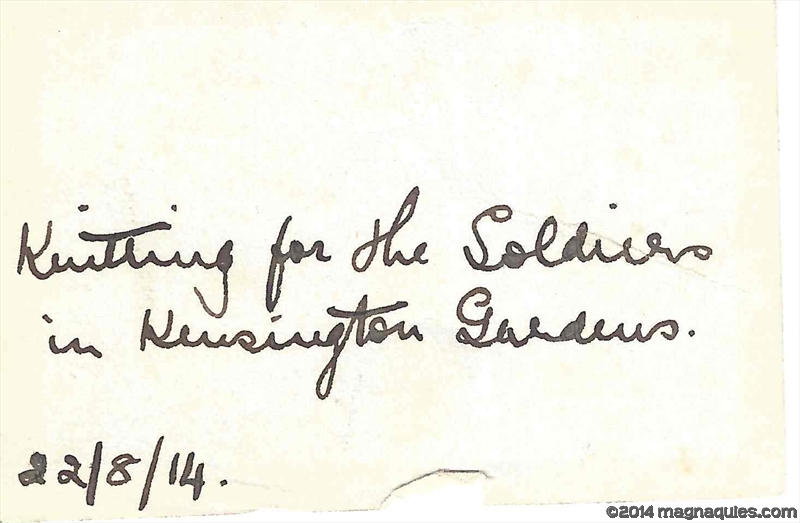 Knitting for the Soldiers
in Kensington Gardens.
22/8/14.
©2014 magnaquies.com